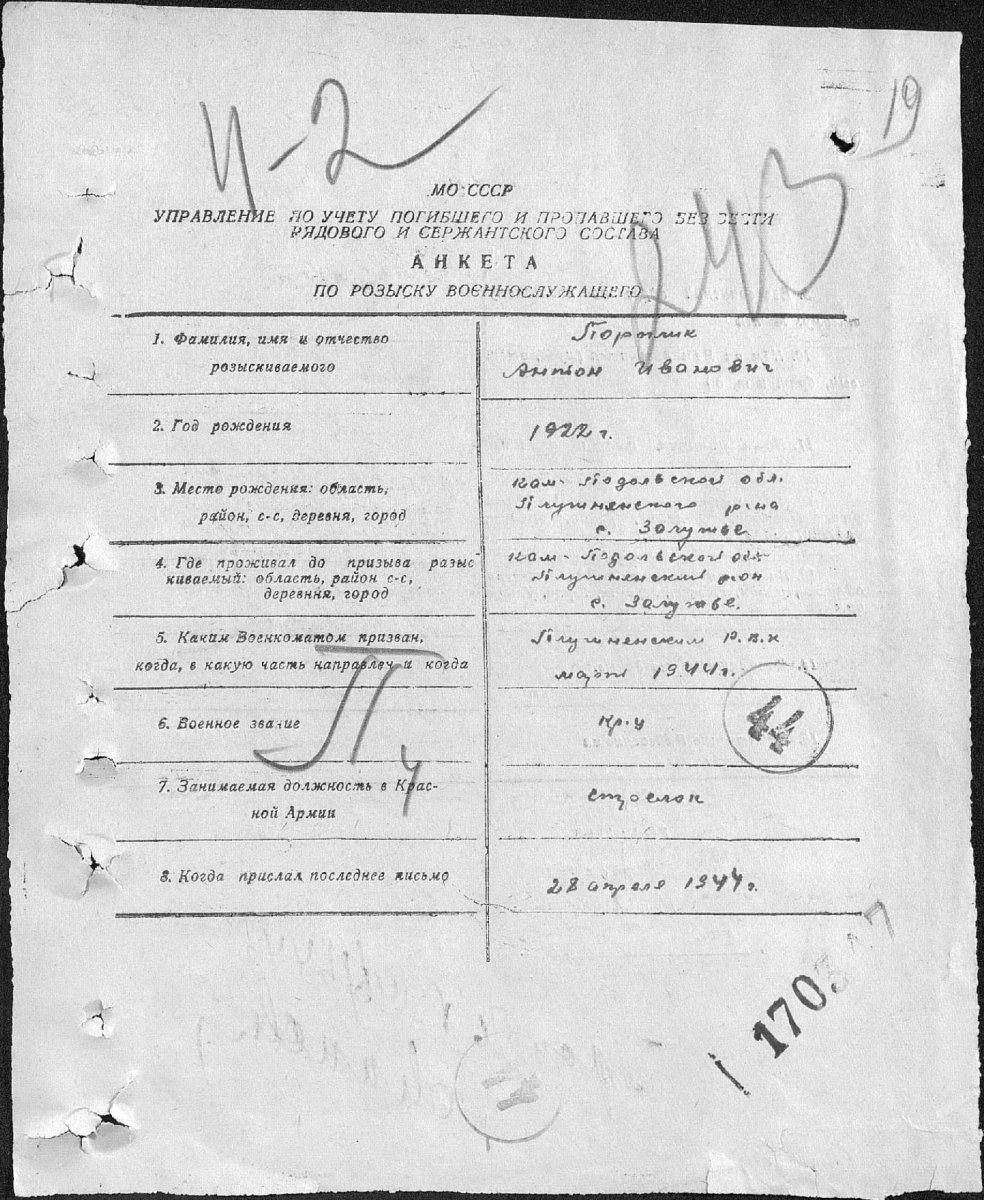 19
4-2
243
МО СССР
УПРАВЛЕНИЕ ПО УЧЕТУ ПОГИБШЕГО И ПРОПАВШЕГО БЕЗ ВЕСТИ
РЯДОВОГО И СЕРЖАНТСКОГО СОСТАВА
АНКЕТА
ПО РОЗЫСКУ ВОЕННОСЛУЖАЩЕГО
1. Фамилия, имя и отчество
розыскиваемого
Антон Иванович
2. Год рождения
1922 г.
3. Место рождения: область,
район, с-с, деревня, город
Кам-Подольской обл.
Плужненского р-на
с. Залужье
4. Где проживал до призыва разыс
киваемый: область, район с-с,
деревння, город
Кам-Подольской обл
Плужненский р-он
с. Залужье.
5. Каким Военкоматом призван,
когда, в какую часть направлен и когда
Плужненским Р.В.К
март 1944г.
6. Военное звание
кр-ц
44
П
4
7. Занимаемая должность в Крас-
ной Армии
стрелок
8. Когда прислал последнее письмо
28 апреля 1944г.